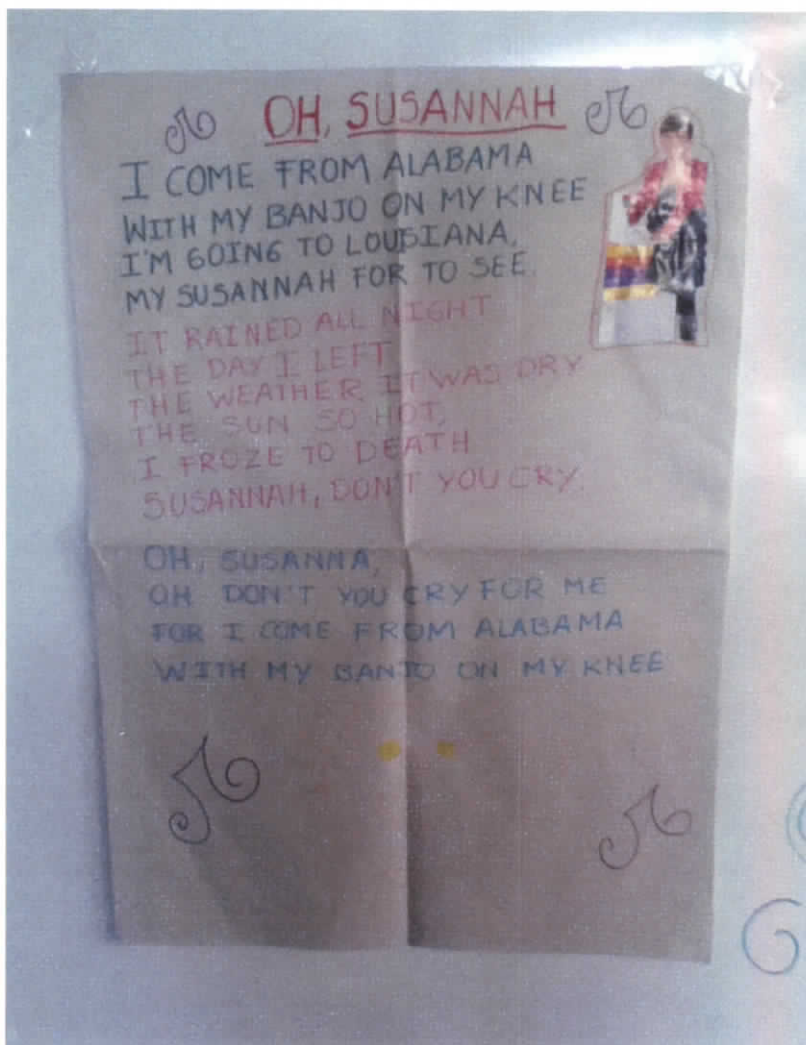 OH, SUSANNAH
I COME FROM ALABAMA
WITH MY BANJO ON MY KNEE
I'M GOING TO LOUISIANA,
MY SUSANNAH FOR TO SEE.
IT RAINED ALL NIGHT
THE DAY I LEFT
THE WEATHER IT WAS DRY
THE SUN SO HOT,
I FROZE TO DEATH
SUSANNAH, DON'T YOU CRY.
OH, SUSANNA,
OH DON'T YOU CRY FOR ME
FOR I COME FROM ALABAMA
WITH MY BANJO ON MY KNEE